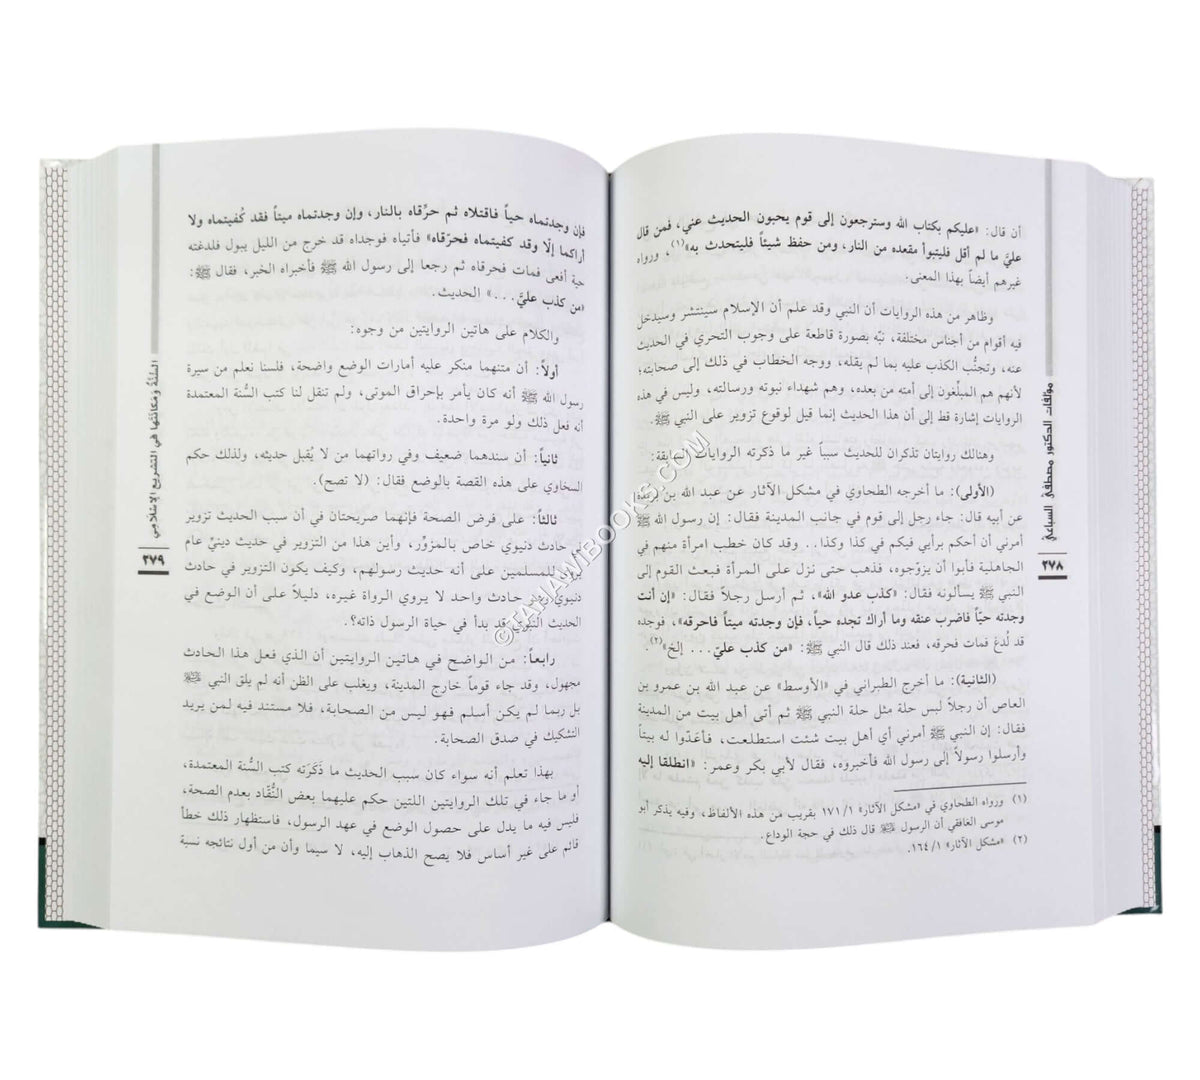 أن قال: «عليكم بكتاب الله وسترجعون إلى قوم يحبون الحديث عني، فمن قال
عليَّ ما لم أقل فليتبوأ مقعده من النار، ومن حفظ شيئاً فليتحدث به»(١)، ورواه
غيرهم أيضاً بهذا المعنى.
وظاهر من هذه الروايات أن النبي وقد علم أن الإسلام سينتشر وسيدخل
فيه أقوام من أجناس مختلفة، نبّه بصورة قاطعة على وجوب التحري في الحديث
عنه، وتجنُّب الكذب عليه بما لم يقله، ووجه الخطاب في ذلك إلى صحابته؛
لأنهم هم المبلِّغون إلى أمته من بعده، وهم شهداء نبوته ورسالته، وليس في هذه
الروايات إشارة قط إلى أن هذا الحديث إنما قيل لوقوع تزوير على النبي ﷺ.
وهنالك روايتان تذكران للحديث سبباً غير ما ذكرته الروايات السابقة:
(الأولى): ما أخرجه الطحاوي في مشكل الآثار عن عبد الله بن بريدة
عن أبيه قال: جاء رجل إلى قوم في جانب المدينة فقال: إن رسول الله ﷺ
أمرني أن أحكم برأيي فيكم في كذا وكذا.. وقد كان خطب امرأة منهم في
الجاهلية فأبوا أن يزوّجوه، فذهب حتى نزل على المرأة فبعث القوم إلى
النبي ﷺ يسألونه فقال: «كذب عدو الله»، ثم أرسل رجلاً فقال: «إن أنت
وجدته حيّاً فاضرب عنقه وما أراك تجده حياً، فإن وجدته ميتاً فاحرقه»، فوجده
قد لُدغ فمات فحرقه، فعند ذلك قال النبي ﷺ: «من كذب عليَّ... إلخ»(٢).
(الثانية): ما أخرج الطبراني في «الأوسط» عن عبد الله بن عمرو بن
العاص أن رجلاً لبس حلة مثل حلة النبي ﷺ ثم أتى أهل بيت من المدينة
فقال: إن النبي ﷺ أمرني أي أهل بيت شئت استطلعت، فأعَدّوا له بيتاً
وأرسلوا رسولاً إلى رسول الله فأخبروه، فقال لأبي بكر وعمر: «انطلقا إليه
(١) ورواه الطحاوي في «مشكل الآثار» ١٧١/١ بقريب من هذه الألفاظ، وفيه يذكر أبو
موسى الغافقي أن الرسول ﷺ قال ذلك في حجة الوداع.
(٢) «مشكل الآثار» ١٦٤/١.
مؤلفات الدكتور مصطفى السباعي
٢٧٨
فإن وجدتماه حياً فاقتلاه ثم حرِّقاه بالنار، وإن وجدتماه ميتاً فقد كُفيتماه ولا
أراكما إلّا وقد كفيتماه فحرِّقاه» فأتياه فوجداه قد خرج من الليل يبول فلدغته
حية أفعى فمات فحرقاه ثم رجعا إلى رسول الله ﷺ فأخبراه الخبر، فقال ﷺ:
«من كذب عليَّ...» الحديث.
والكلام على هاتين الروايتين من وجوه:
أولاً: أن متنهما منكر عليه أمارات الوضع واضحة، فلسنا نعلم من سيرة
رسول الله ﷺ أنه كان يأمر بإحراق الموتى، ولم تنقل لنا كتب السُّنة المعتمدة
أنه فعل ذلك ولو مرة واحدة.
ثانياً: أن سندهما ضعيف وفي رواتهما من لا يُقبل حديثه، ولذلك حكم
السخاوي على هذه القصة بالوضع فقال: (لا تصح).
ثالثاً: على فرض الصحة فإنهما صريحتان في أن سبب الحديث تزوير
في حادث دنيوي خاص بالمزوِّر، وأين هذا من التزوير في حديث دينيٍّ عام
يروى للمسلمين على أنه حديث رسولهم، وكيف يكون التزوير في حادث
دنيوي في حادث واحد لا يروي الرواة غيره، دليلاً على أن الوضع في
الحديث النبوي قد بدأ في حياة الرسول ذاته؟.
رابعاً: من الواضح في هاتين الروايتين أن الذي فعل هذا الحادث
مجهول، وقد جاء قوماً خارج المدينة، ويغلب على الظن أنه لم يلق النبي ﷺ
بل ربما لم يكن أسلم فهو ليس من الصحابة، فلا مستند فيه لمن يريد
التشكيك في صدق الصحابة.
بهذا تعلم أنه سواء كان سبب الحديث ما ذَكَرَته كتب السُّنة المعتمدة،
أو ما جاء في تلك الروايتين اللتين حكم عليهما بعض النُّقَّاد بعدم الصحة،
فليس فيه ما يدل على حصول الوضع في عهد الرسول، فاستظهار ذلك خطأ
قائم على غير أساس فلا يصح الذهاب إليه، لا سيما وأن من أول نتائجه نسبة
السُّنَّةُ وَمَكَانَتُهَا في التشريع الإسلامي
٢٧٩
©TAHAWIBOOKS.COM